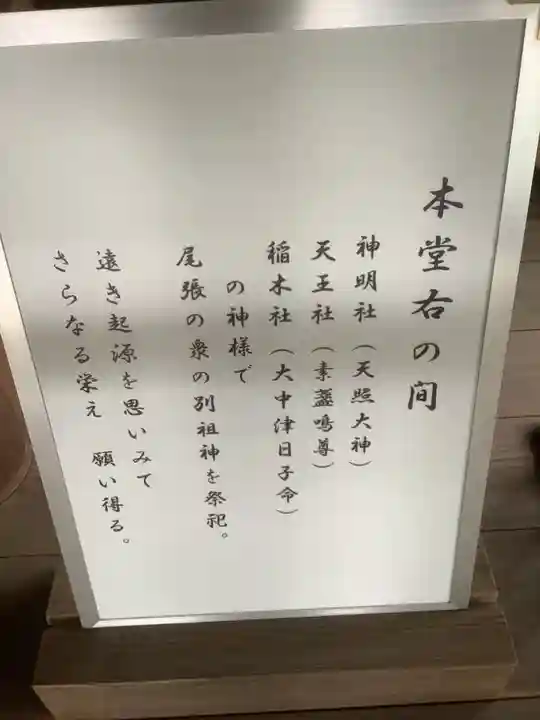 本堂右の間
神明社(天照大神)
天王社(素盞嗚尊)
稲木社(大中津日子命)
の神様で
尾張の衆の別祖神を祭祀。
遠き起源を思いみて
さらなる栄え 願い得る。